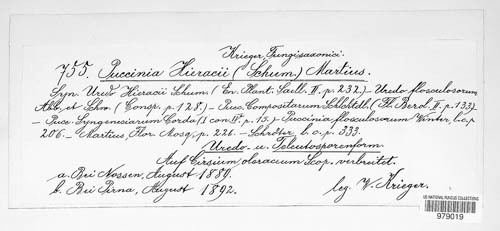 Krieger, Fungi saxonici.
755. Puccinia Hieracii (Schum.) Martius.
Syn. Uredo Hieracii Schum. (En. Plant. Saell. II. p. 232.) – Uredo flosculosorum
Alb. et Schw. (Consp. p. 128.) – Pucc. Compositarum Schlechtdl. (Fl. Berol. II. p. 133)
– Pucc. Syngenesiarum Corda (Icon. IV. p. 15.) – Puccinia flosculosorum Winter, l. c. p.
206. – Martius, Flor. Mosq. p. 226. – Schröter l. c. p. 333.
Uredo- u. Teleutosporenform.
Auf Cirsium oleraceum Scop. verbreitet.
a. Bei Nossen, August 1889.
b. Bei Pirna, August 1892. leg. W. Krieger.
US NATIONAL FUNGUS COLLECTIONS
979019